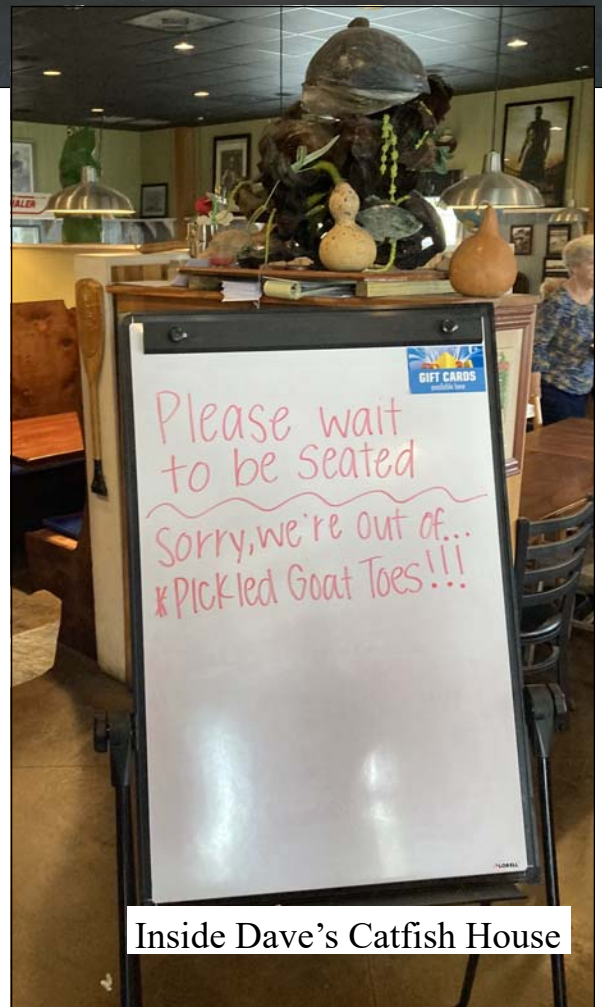 HALER
GIFT CARDS
available here
Please wait
to be seated
Sorry, we're out of...
*Pickled Goat Toes!!!
LORELL
Inside Dave's Catfish House